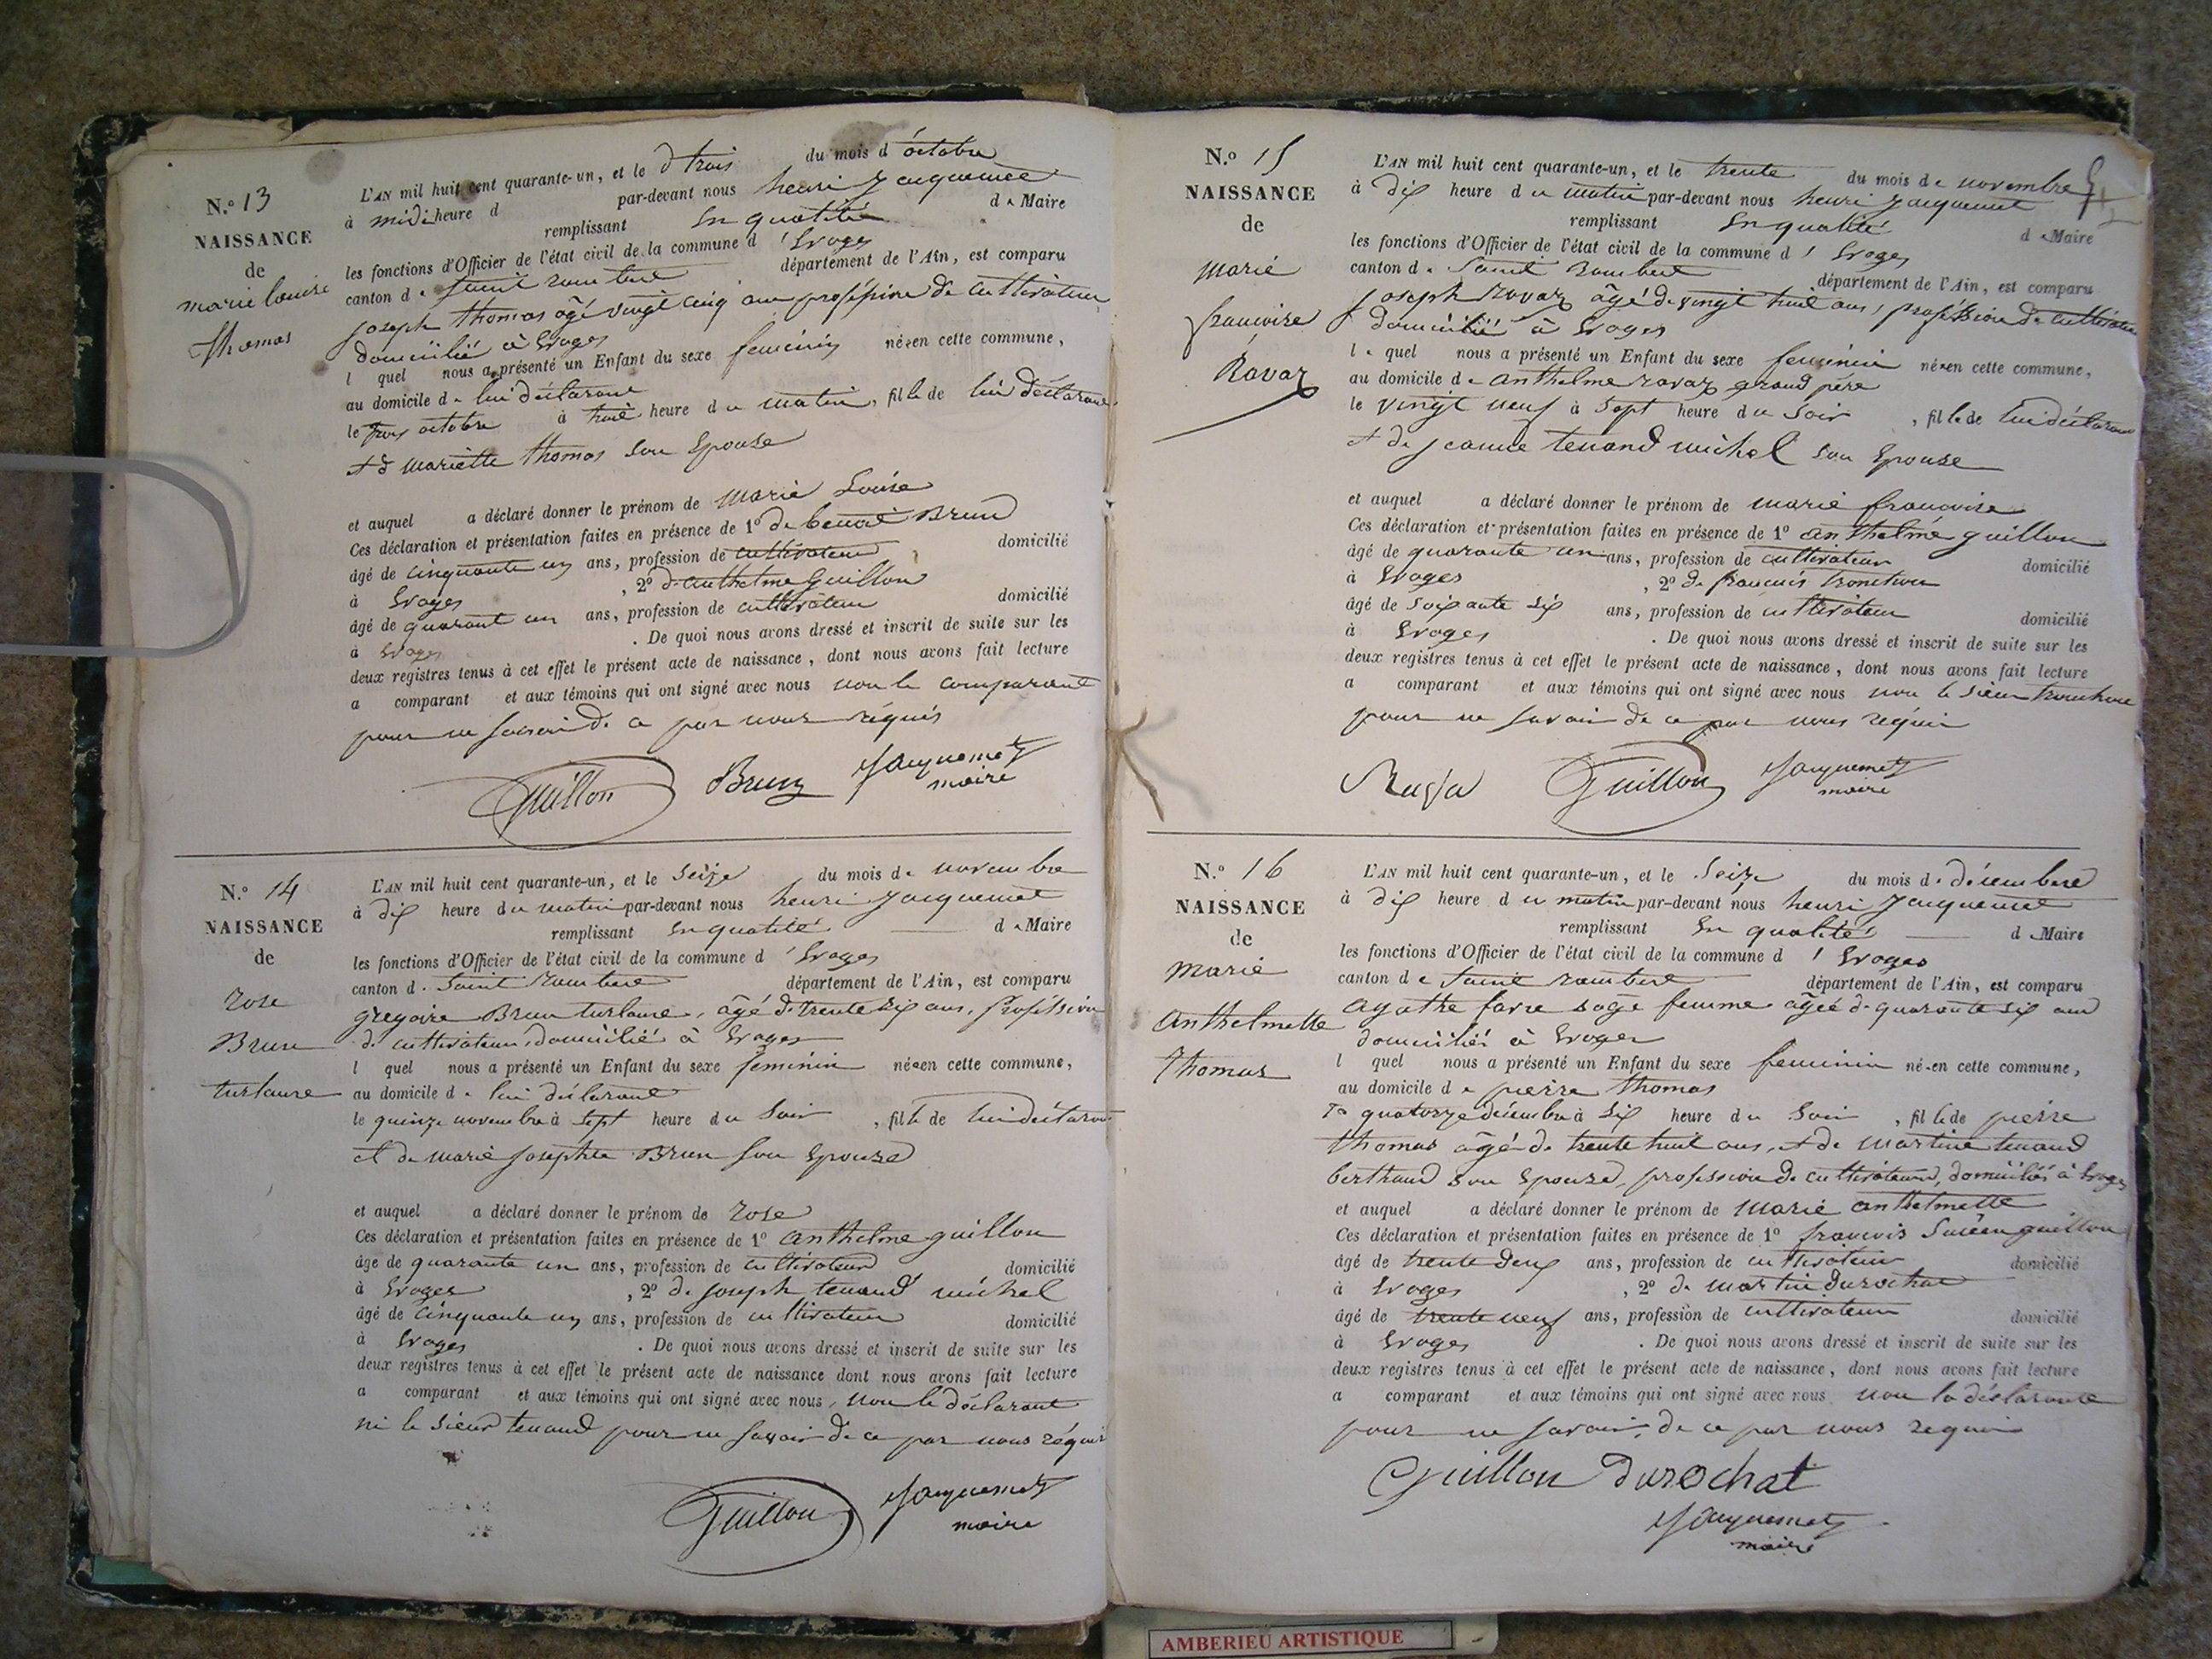 N.o 13
NAISSANCE
de
marie louise
Thomas
L'AN mil huit cent quarante-un, et le trois du mois d'octobre
à midi heure d par-devant nous henri Jacquemet
remplissant En qualité de Maire
les fonctions d'Officier de l'état civil de la commune d'Evoges
canton de Saint rambert département de l'Ain, est comparu
joseph thomas âgé vingt cinq ans proféssion de cultivateur
domicilié à Evoges
l quel nous a présenté un Enfant du sexe feminin née en cette commune,
au domicile de lui déclarant
le trois octobre à huit heure du matin, fille de lui déclarant
et d mariette thomas son Epouse
et auquel a déclaré donner le prénom de marie Louise
Ces déclaration et présentation faites en présence de 1o de benoit Brun
âgé de cinquante un ans, profession de cultivateur domicilié
à Evoges , 2o d'anthelme Guillon
âgé de quarant un ans, profession de cultivateur domicilié
à Evoges . De quoi nous avons dressé et inscrit de suite sur les
deux registres tenus à cet effet le présent acte de naissance, dont nous avons fait lecture
a comparant et aux témoins qui ont signé avec nous non le comparant
pour ne savoir de ce par nous réquis
Guillon Brun Jacquemet
maire
N.o 14
NAISSANCE
de
rose
Brun
turlaure
L'AN mil huit cent quarante-un, et le seize du mois de novembre
à dix heure du matin par-devant nous henri Jacquemet
remplissant En qualité de Maire
les fonctions d'Officier de l'état civil de la commune d'Evoges
canton de Saint rambert département de l'Ain, est comparu
gregoire Brun turlaure, âgé de trente six ans, proféssion
de cultivateur, domicilié à Evoges
l quel nous a présenté un Enfant du sexe féminin née en cette commune,
au domicile de lui déclarant
le quinze novembre à sept heure du soir , fille de lui déclarant
et de marie josephte Brun son Epouse
et auquel a déclaré donner le prénom de rose
Ces déclaration et présentation faites en présence de 1o anthelme guillon
âgé de quarante un ans, profession de cultivateur domicilié
à Evoges , 2o de joseph tenand michel
âgé de cinquante un ans, profession de cultivateur domicilié
à Evoges . De quoi nous avons dressé et inscrit de suite sur les
deux registres tenus à cet effet le présent acte de naissance dont nous avons fait lecture
a comparant et aux témoins qui ont signé avec nous, non le déclarant
ni le sieur tenand pour ne savoir de ce par nous réquis
Guillon Jacquemet
maire
N.o 15
NAISSANCE
de
marie
francoise
Ravaz
L'AN mil huit cent quarante-un, et le trente du mois de novembre
à dix heure du matin par-devant nous henri Jacquemet
remplissant En qualité de Maire
les fonctions d'Officier de l'état civil de la commune d'Evoges
canton de Saint Rambert département de l'Ain, est comparu
joseph ravaz âgé de vingt huit ans, proféssion de cultivateur
domicilié à Evoges
le quel nous a présenté un Enfant du sexe feminin née en cette commune,
au domicile de anthelme ravaz grand père
le vingt neuf à sept heure du soir , fille de lui déclarant
et de jeanne tenand michel son Epouse
et auquel a déclaré donner le prénom de marie francoise
Ces déclaration et présentation faites en présence de 1o anthelme guillon
âgé de quarante un ans, profession de cultivateur domicilié
à Evoges , 2o de francois tronchon
âgé de soixante six ans, profession de cultivateur domicilié
à Evoges . De quoi nous avons dressé et inscrit de suite sur les
deux registres tenus à cet effet le présent acte de naissance, dont nous avons fait lecture
a comparant et aux témoins qui ont signé avec nous non le sieur tronchon
pour ne savoir de ce par nous réquis
Guillon Jacquemet
maire
N.o 16
NAISSANCE
de
marie
anthelmette
Thomas
L'AN mil huit cent quarante-un, et le seize du mois de décembre
à dix heure du matin par-devant nous henri Jacquemet
remplissant En qualité de Maire
les fonctions d'Officier de l'état civil de la commune d'Evoges
canton de Saint rambert département de l'Ain, est comparu
agathe favre sage femme âgée de quarante six ans
domicilié à Evoges
l quel nous a présenté un Enfant du sexe feminin née en cette commune,
au domicile de pierre thomas
le quatorze décembre à six heure du soir , fille de pierre
thomas âgé de trente huit ans, et de martine tenand
bertrand son Epouse, profession de cultivateurs, domiciliés à Evoges
et auquel a déclaré donner le prénom de marie anthelmette
Ces déclaration et présentation faites en présence de 1o francois guillon
âgé de trente deux ans, profession de cultivateur domicilié
à Evoges , 2o de martin durochat
âgé de trente neuf ans, profession de cultivateur domicilié
à Evoges . De quoi nous avons dressé et inscrit de suite sur les
deux registres tenus à cet effet le présent acte de naissance, dont nous avons fait lecture
a comparant et aux témoins qui ont signé avec nous non la déclarante
pour ne savoir, de ce par nous requis
Guillon Durochat
Jacquemet
maire
AMBERIEU ARTISTIQUE